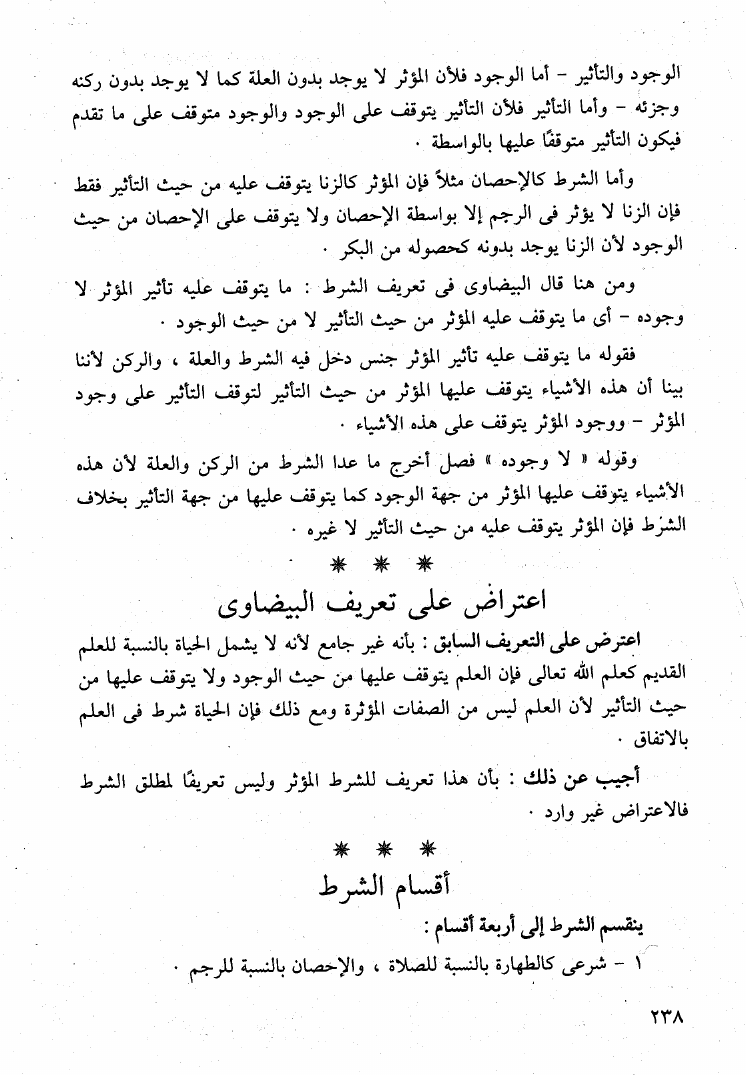 الوجود والتأثير – أما الوجود فلأن المؤثر لا يوجد بدون العلة كما لا يوجد بدون ركنه
وجزئه – وأما التأثير فلأن التأثير يتوقف على الوجود والوجود متوقف على ما تقدم
فيكون التأثير متوقفًا عليها بالواسطة ٠
وأما الشرط كالإحصان مثلاً فإن المؤثر كالزنا يتوقف عليه من حيث التأثير فقط
فإن الزنا لا يؤثر فى الرجم إلا بواسطة الإحصان ولا يتوقف على الإحصان من حيث
الوجود لأن الزنا يوجد بدونه كحصوله من البكر ٠
ومن هنا قال البيضاوى فى تعريف الشرط : ما يتوقف عليه تأثير المؤثر لا
وجوده – أى ما يتوقف عليه المؤثر من حيث التأثير لا من حيث الوجود ٠
فقوله ما يتوقف عليه تأثير المؤثر جنس دخل فيه الشرط والعلة ، والركن لأننا
بينا أن هذه الأشياء يتوقف عليها المؤثر من حيث التأثير لتوقف التأثير على وجود
المؤثر – ووجود المؤثر يتوقف على هذه الأشياء ٠
وقوله « لا وجوده » فصل أخرج ما عدا الشرط من الركن والعلة لأن هذه
الأشياء يتوقف عليها المؤثر من جهة الوجود كما يتوقف عليها من جهة التأثير بخلاف
الشرط فإن المؤثر يتوقف عليه من حيث التأثير لا غيره ٠
* * *
اعتراض على تعريف البيضاوى
اعترض على التعريف السابق : بأنه غير جامع لأنه لا يشمل الحياة بالنسبة للعلم
القديم كعلم الله تعالى فإن العلم يتوقف عليها من حيث الوجود ولا يتوقف عليها من
حيث التأثير لأن العلم ليس من الصفات المؤثرة ومع ذلك فإن الحياة شرط فى العلم
بالاتفاق ٠
أجيب عن ذلك : بأن هذا تعريف للشرط المؤثر وليس تعريفًا لمطلق الشرط
فالاعتراض غير وارد ٠
* * *
أقسام الشرط
ينقسم الشرط إلى أربعة أقسام :
١ – شرعى كالطهارة بالنسبة للصلاة ، والإحصان بالنسبة للرجم ٠
٢٣٨